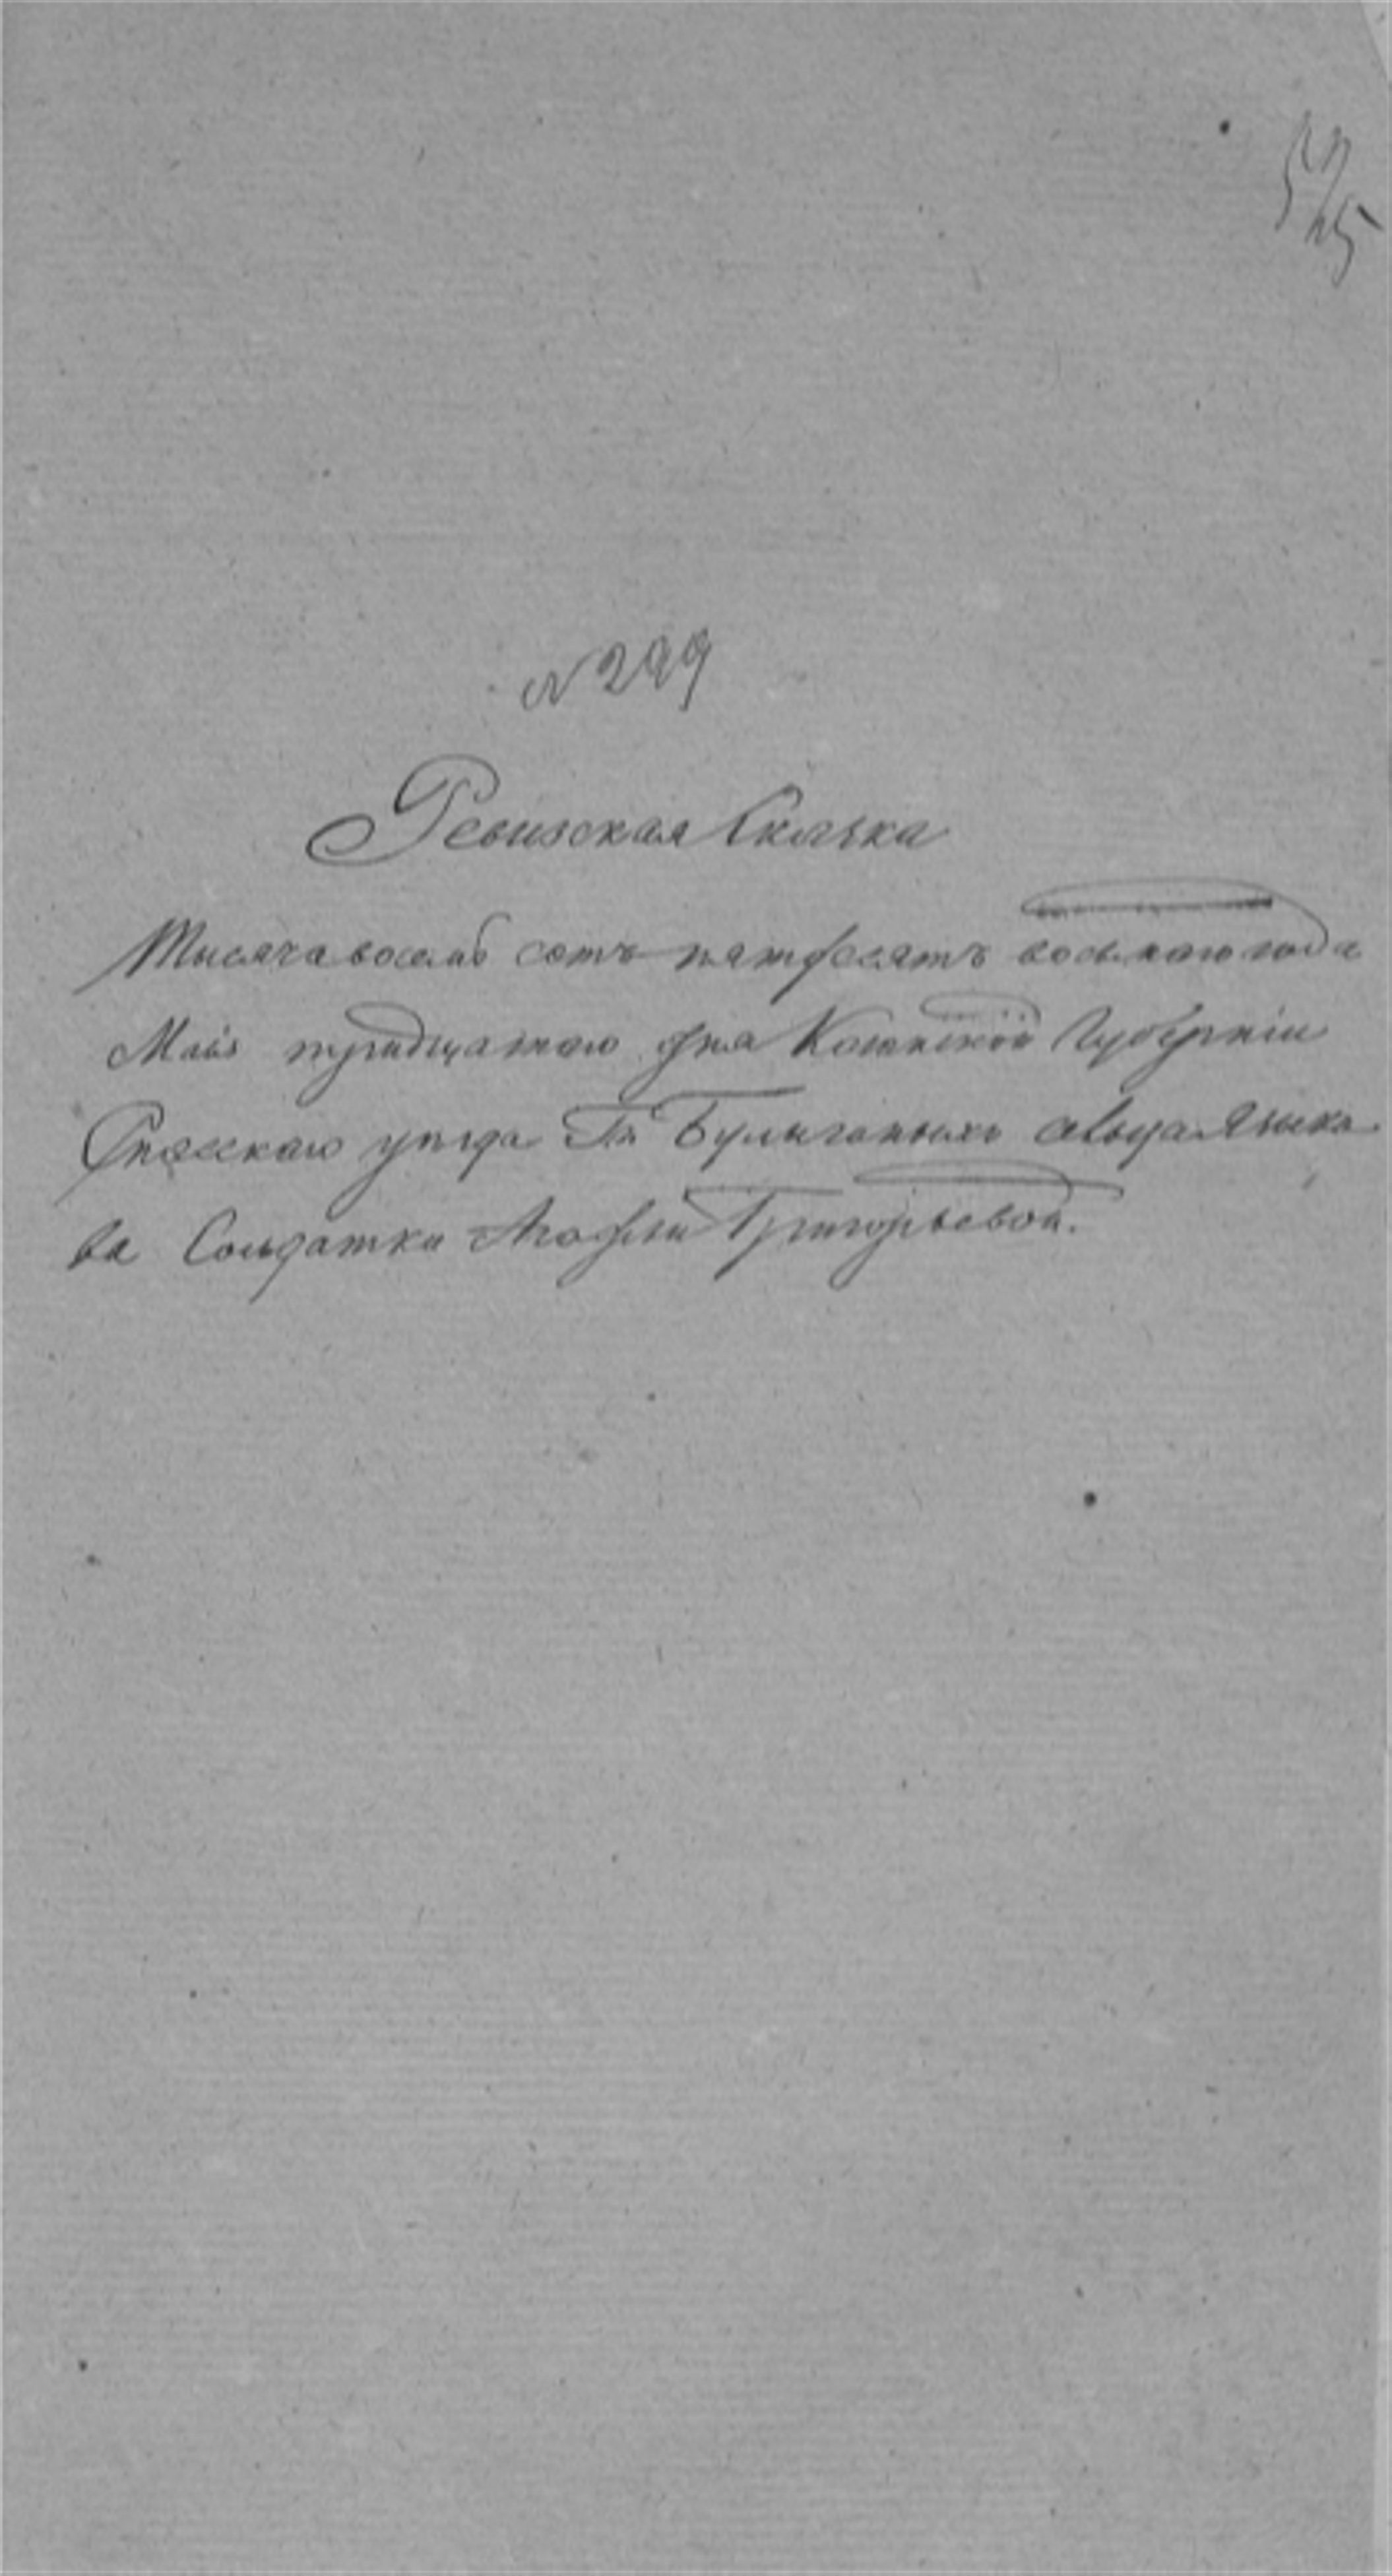 № 299
Ревизская Скаска
Тысяча восемь сотъ пятдесятъ восьмаго года
Маiя тридцатаго дня Казанской Губернiи
Спасскаго уезда Гг. Булыгиныхъ сельца Языко
ва Солдатки Агафьи Григорьевой.